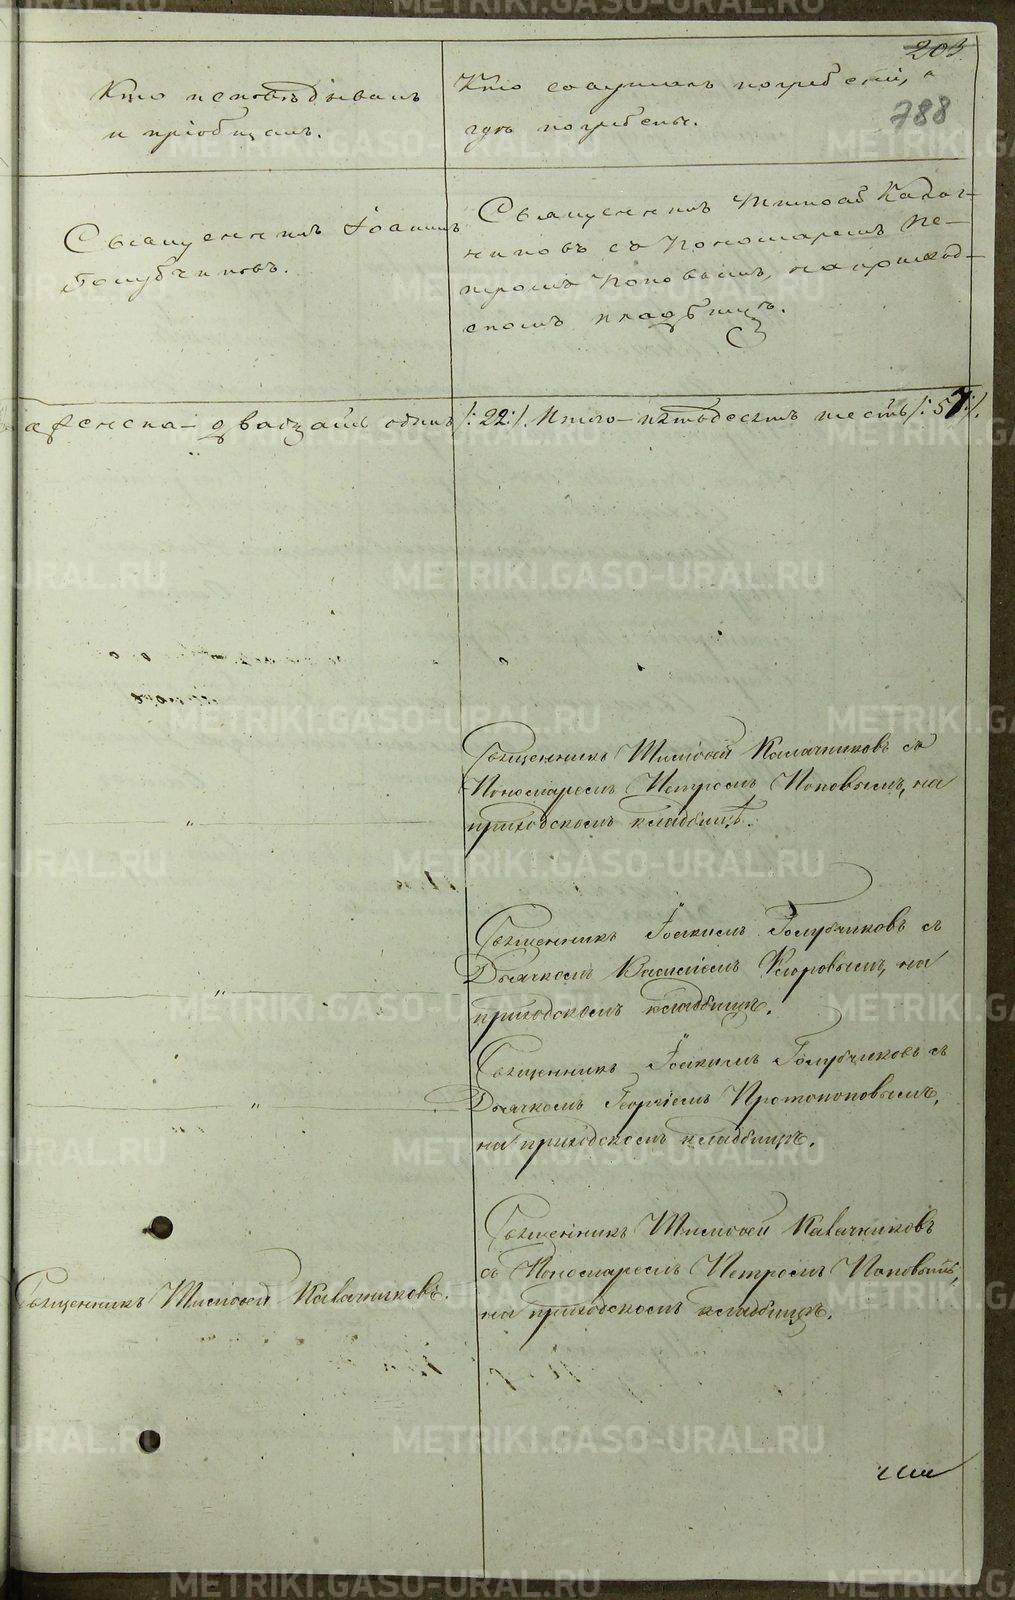 203
788
Кто исповѣдывалъ
и пріобщалъ.
Кто совершалъ погребеніе, и
гдѣ погребены.
Священникъ Іоакимъ
Голубчиковъ.
Священникъ Тимофей Калач-
никовъ съ Пономаремъ Пе-
тромъ Поповымъ, на приход-
скомъ кладбищѣ.
а женска - двадцать одинъ /:22:/. Итого - пятьдесятъ шесть /:57:/.
Священникъ Тимофей Калачниковъ съ
Пономаремъ Петромъ Поповымъ, на
приходскомъ кладбищѣ.
Священникъ Іоакимъ Голубчиковъ съ
Дьячкомъ Василіемъ Егоровымъ, на
приходскомъ кладбищѣ.
Священникъ Іоакимъ Голубчиковъ съ
Дьячкомъ Георгіемъ Протопоповымъ,
на приходскомъ кладбищѣ.
Священникъ Тимофей Калачниковъ.
Священникъ Тимофей Калачниковъ
съ Пономаремъ Петромъ Поповымъ,
на приходскомъ кладбищѣ.
METRIKI.GASO-URAL.RU